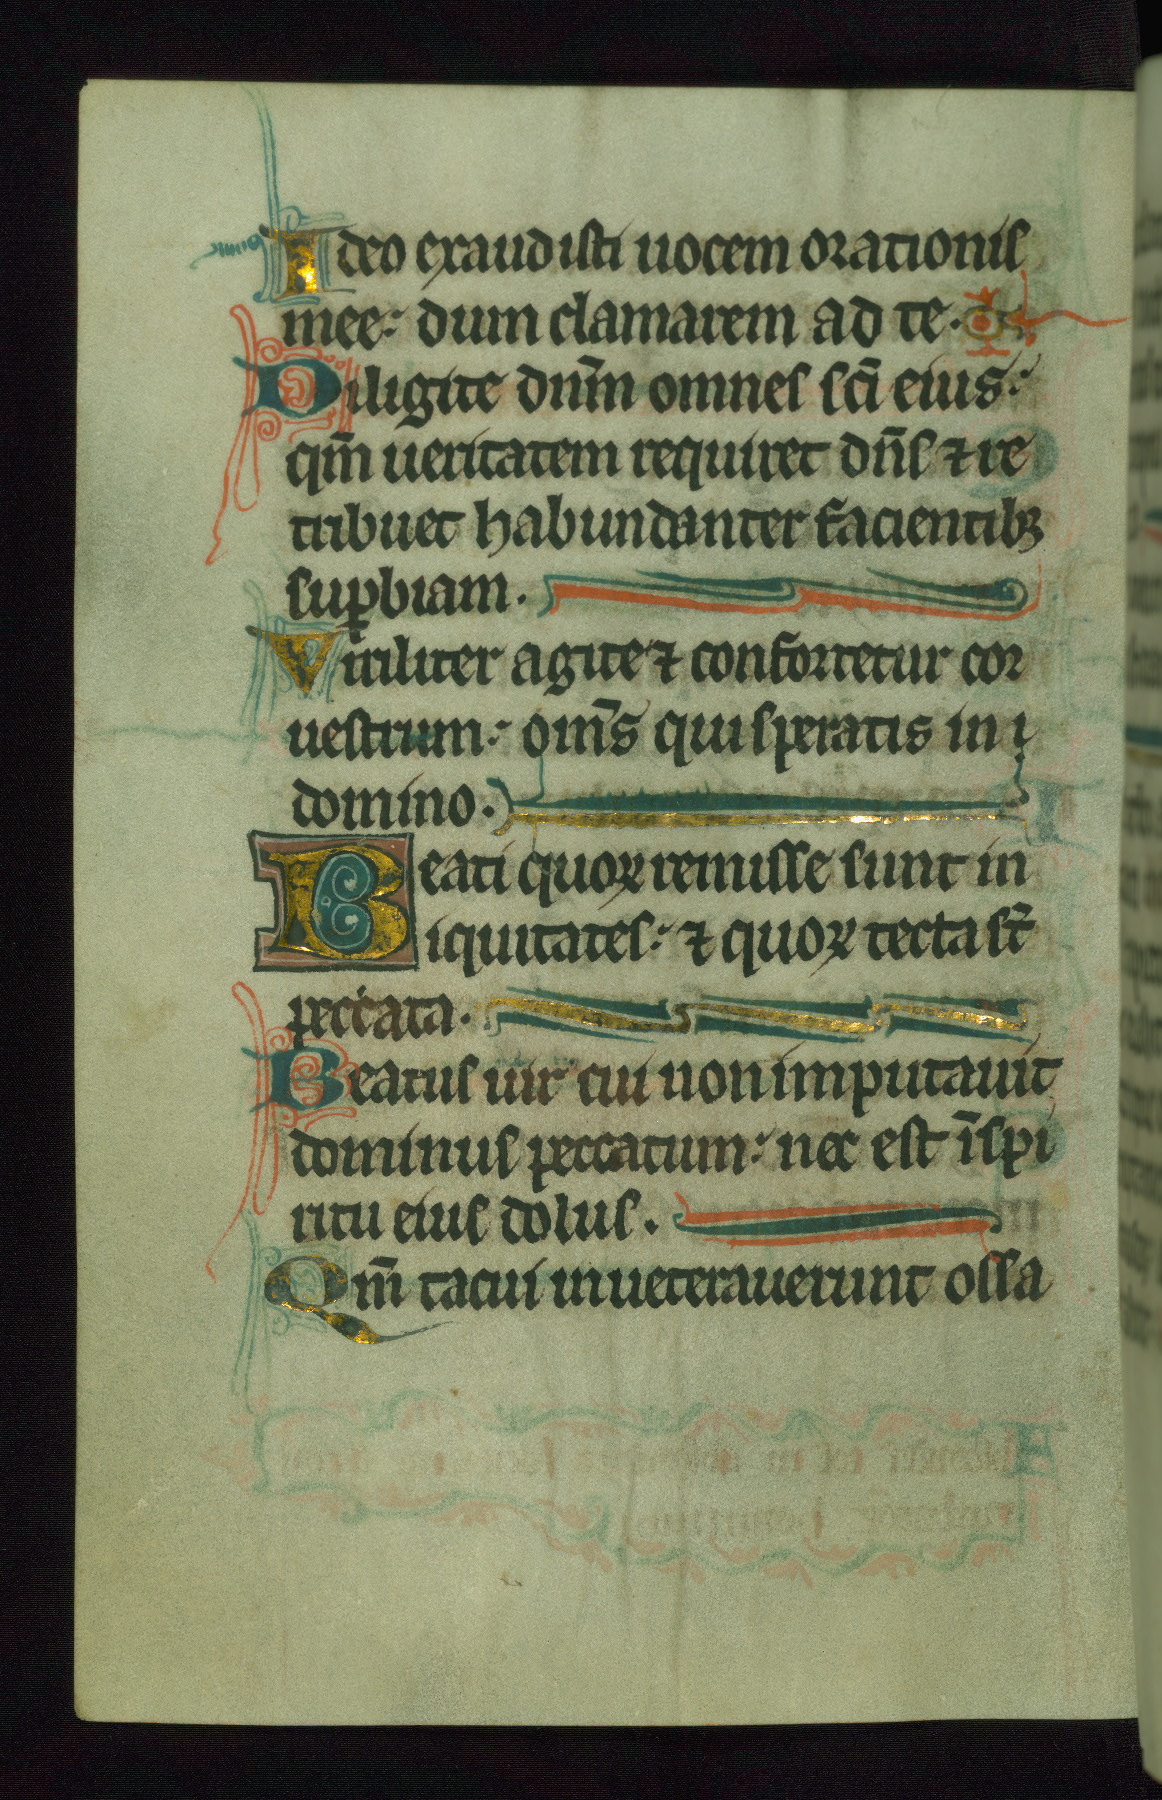 Ideo exaudisti uocem orationis
mee: dum clamarem ad te.
Diligite dn̄m omnes sc̄i eius:
qm̄ ueritatem requiret dn̄s ⁊ re
tribuet habundanter facientibꝫ
suꝑbiam.
Viriliter agite ⁊ confortetur cor
uestrum: om̄s qui speratis in
domino.
Beati quoꝝ remisse sunt in
iquitates: ⁊ quoꝝ tecta st̄
peccata.
Beatus uir cui non imputauit
dominus peccatum: nec est ī spi
ritu eius dolus.
Qm̄ tacui inueterauerunt ossa